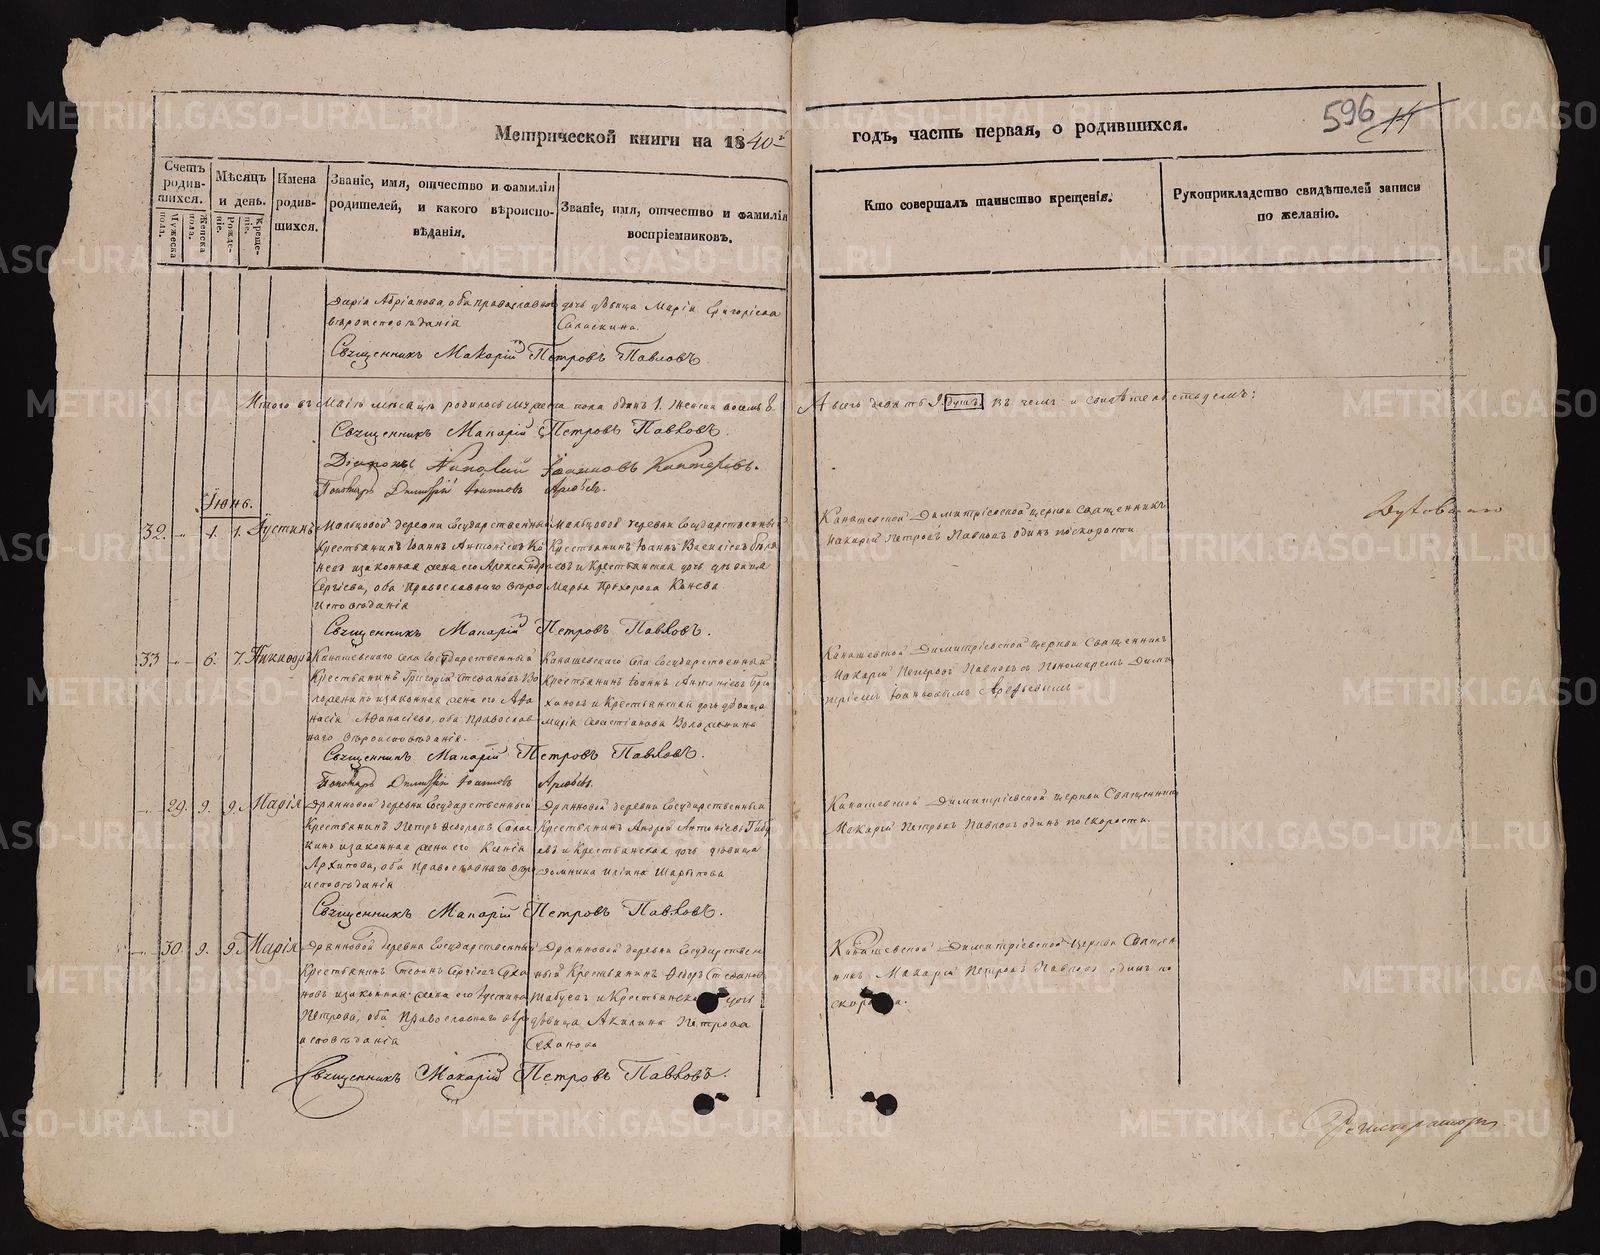 Метрической книги на 1840й годъ, часть первая, о родившихся.
596
Счетъ родившихся.
Мужеска пола.
Женска пола.
Мѣсяцъ и день.
Рожденіе.
Крещеніе.
Имена родившихся.
Званіе, имя, отчество и фамилія родителей, и какого вѣроисповѣданія.
Званіе, имя, отчество и фамилія воспріемниковъ.
Кто совершалъ таинство крещенія.
Рукоприкладство свидѣтелей записи по желанію.
Дарія Абріанова, оба православнаго
вѣроисповѣданія
дочь дѣвица Марія Григоріева
Саласкина.
Священникъ Макарій Петровъ Павловъ
Итого въ Маіѣ мѣсяцѣ родилось мужеска пола одинъ 1. женска восемь 8.
А всего девять 9. душъ въ чемъ и свидѣтельствуемъ:
Священникъ Макарій Петровъ Павловъ.
Діаконъ Іоанновъ
Пономарь Димитрій Іоанновъ Арефьевъ.
Іюнь.
32. 1. 1. Іустинъ
Мальцовой деревни Государственный
Крестьянинъ Іоаннъ Антоніевъ
невъ и законная жена его Александра
Сергіева, оба Православнаго вѣро
исповѣданія
Мальцовой деревни Государственный
Крестьянинъ Іоаннъ Василіевъ
и Крестьянская дочь дѣвица
Марѳа Прохорова Конева
Канашевской Димитріевской церкви Священникъ
Макарій Петровъ Павловъ одинъ по скорости
Священникъ Макарій Петровъ Павловъ.
33 6. 7. Никодимъ
Канашевскаго села Государственный
Крестьянинъ Григорій Стефановъ Во
и законная жена его Аѳа
насія Аѳанасіева, оба Православ
наго вѣроисповѣданія.
Канашевскаго села Государственный
Крестьянинъ Іоаннъ Антоніевъ
хановъ и Крестьянская дочь дѣвица
Марія Севастіанова
Канашевской Димитріевской церкви Священникъ
Макарій Петровъ Павловъ съ Пономаремъ Дими
тріемъ Іоанновымъ Арефьевымъ
Священникъ Макарій Петровъ Павловъ.
Пономарь Димитрій Іоанновъ Арефьевъ.
29. 9. 9. Марія
Дранновой деревни Государственный
Крестьянинъ Петръ Ѳедоровъ Салас
кинъ и законная жена его Ксенія
Архипова, оба Православнаго вѣро
исповѣданія
Дранновой деревни Государственный
Крестьянинъ Андрей Антоніевъ
евъ и Крестьянская дочь дѣвица
Домника Иліина Шарыпова
Канашевской Димитріевской церкви Священникъ
Макарій Петровъ Павловъ одинъ по скорости.
Священникъ Макарій Петровъ Павловъ.
30. 9. 9. Марія
Дранновой деревни Государственный
Крестьянинъ Сергіевъ Суха
новъ и законная жена его Іустина
Петрова, оба Православнаго вѣро
исповѣданія
Дранновой деревни Государствен
ный Крестьянинъ Ѳедоръ Стефановъ
и Крестьянская дочь
дѣвица Акилина Петрова
Суханова
Канашевской Димитріевской церкви Священ
никъ Макарій Петровъ Павловъ одинъ по
скорости.
Священникъ Макарій Петровъ Павловъ.
Регистраторъ
METRIKI.GASO-URAL.RU